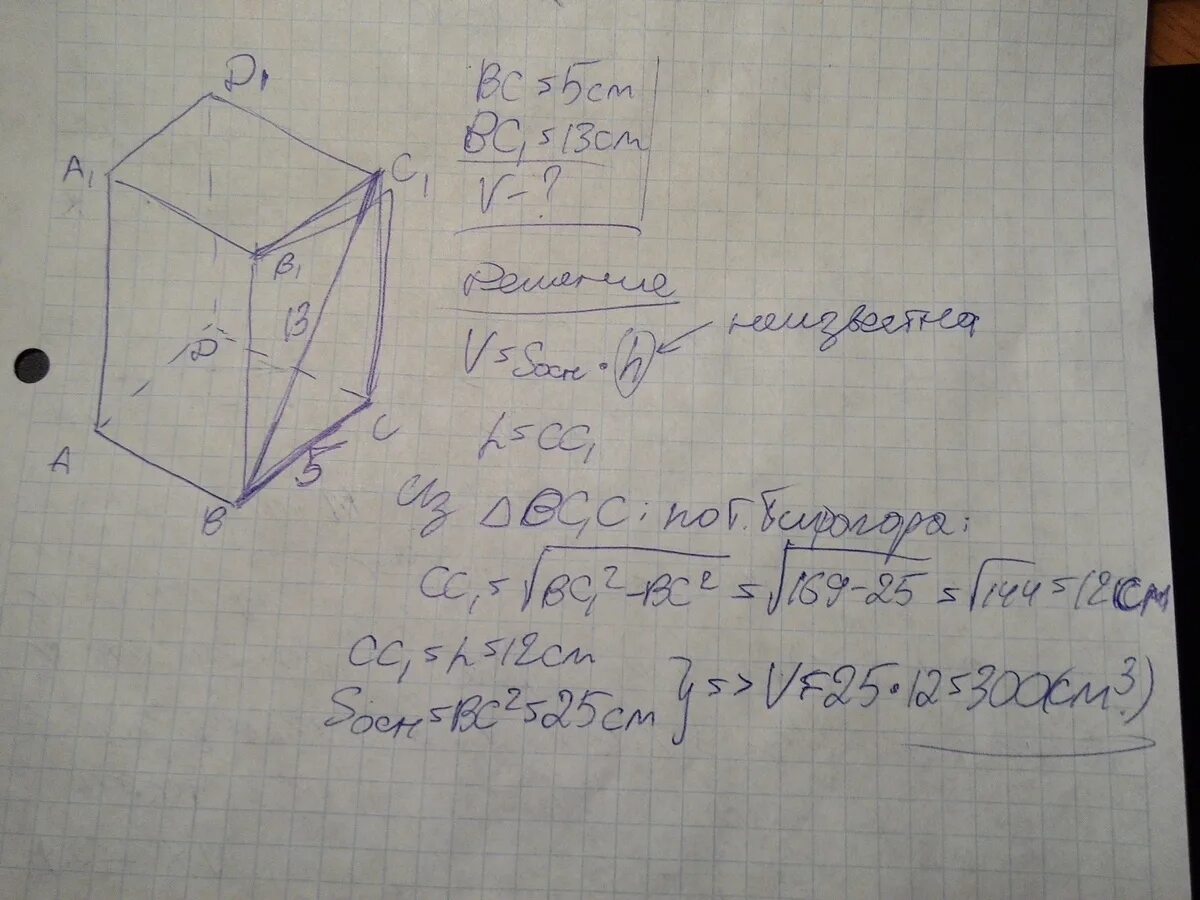 D₁
A₁
C₁
B₁
13
D
A
C
5
B
BC = 5см
BC₁ = 13см
V - ?
Решение
V = Sосн · h
неизвестна
h = CC₁
Из △BC₁C: по т. Пифагора:
CC₁ = √BC₁² - BC² = √169 - 25 = √144 = 12см
CC₁ = h = 12см
Sосн = BC² = 25см
} => V = 25 · 12 = 300(см³)